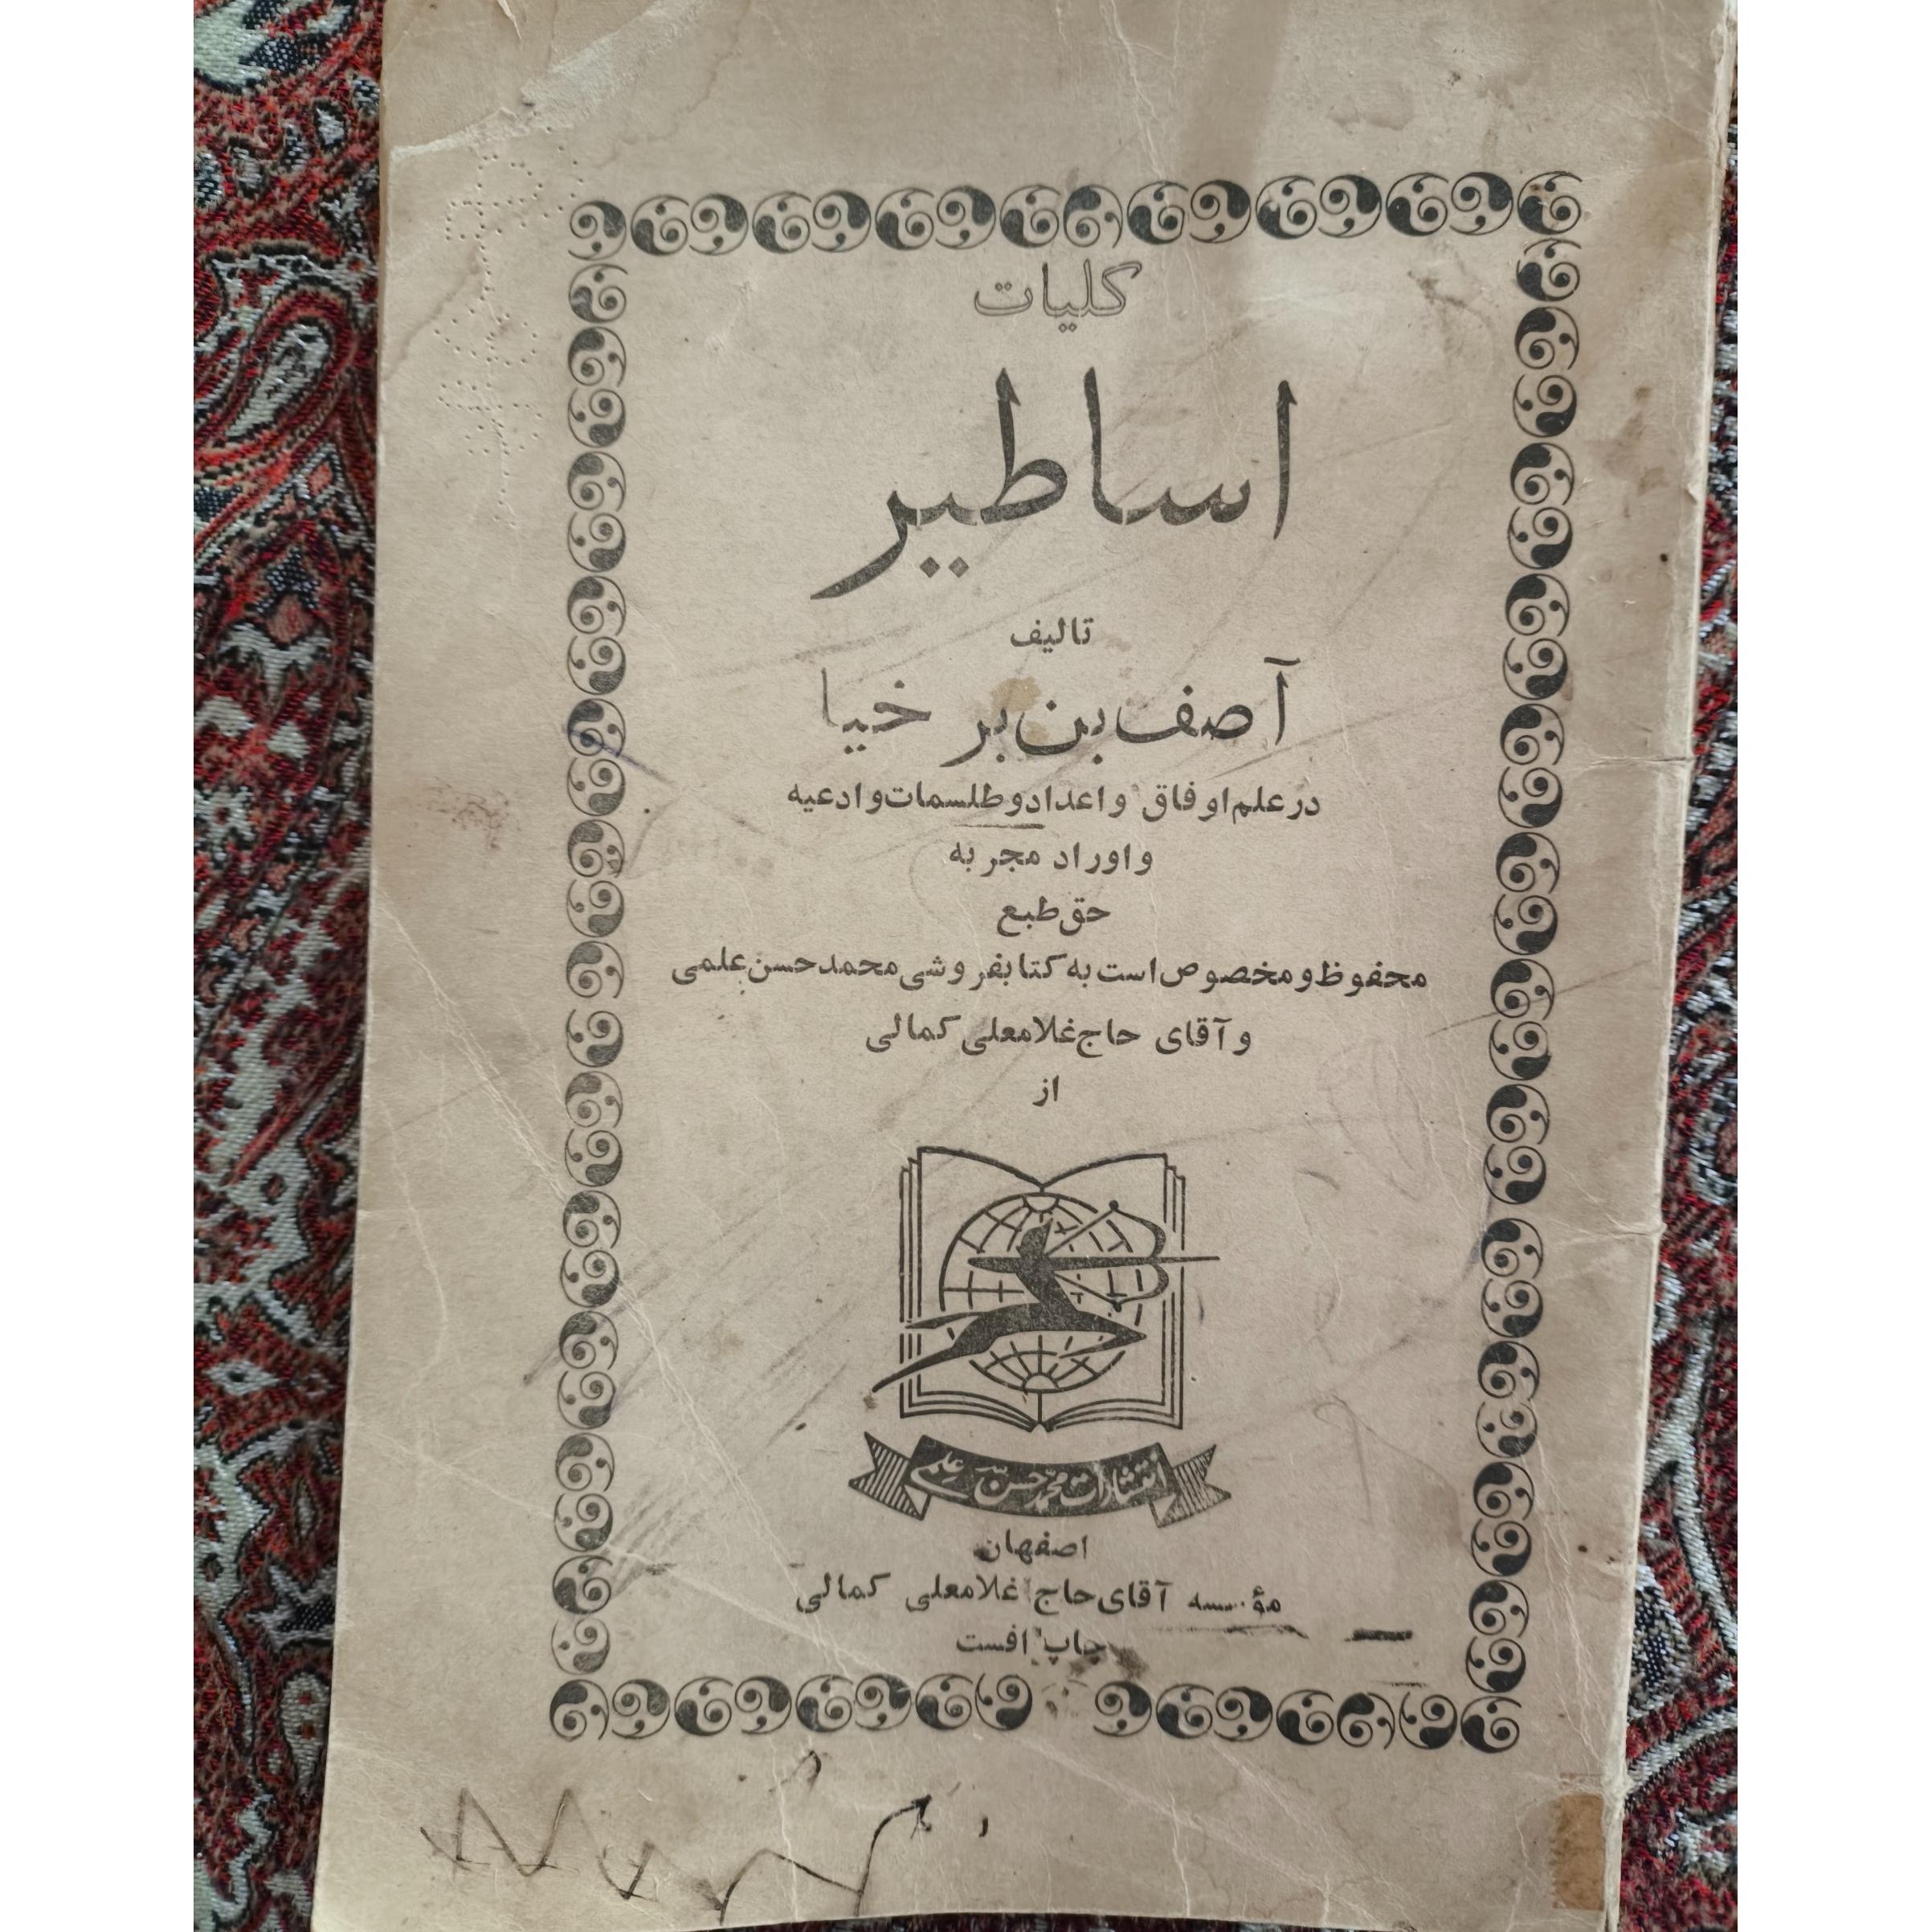 کلیات
اساطیر
تالیف
آصف بن بر خیا
در علم اوفاق واعداد و طلسمات و ادعیه
و اوراد مجر به
حق طبع
محفوظ و مخصوص است به کتابفروشی محمد حسن علمی
و آقای حاج غلامعلی کمالی
از
انتشارات محمد حسن علمی
اصفهان
مؤسسه آقای حاج غلامعلی کمالی
چاپ افست